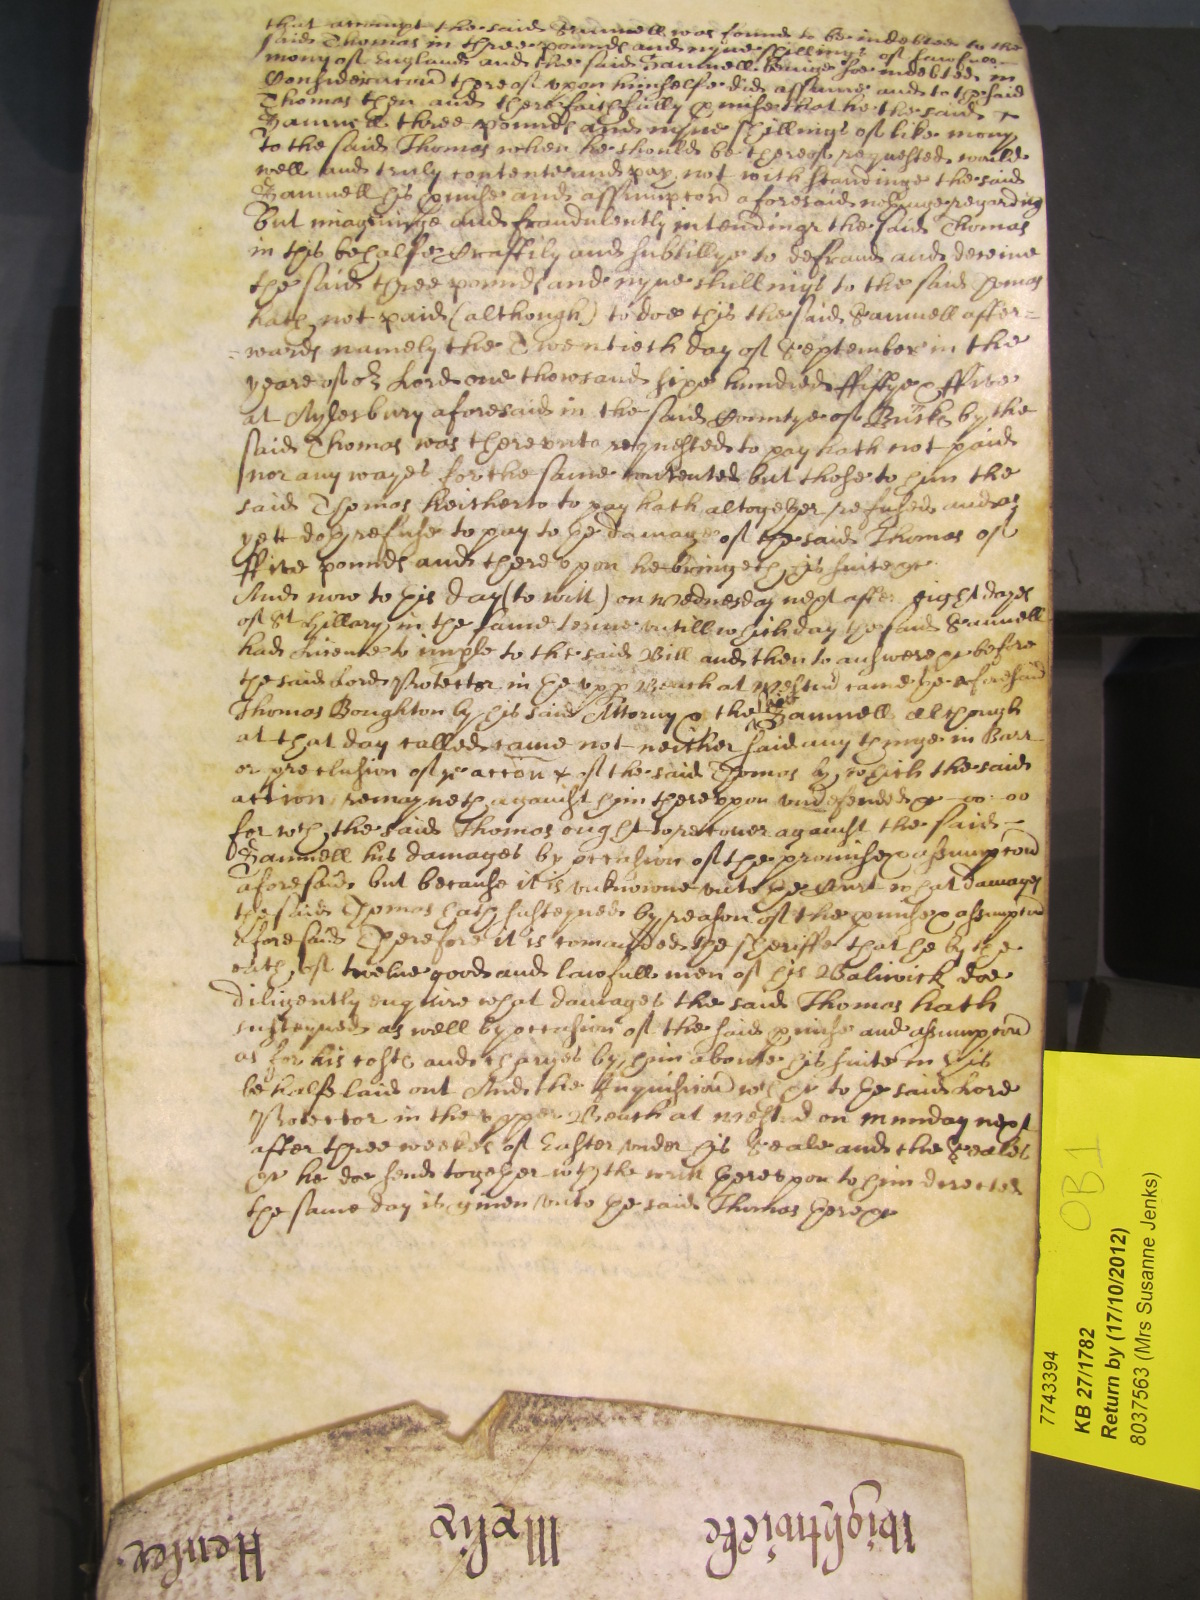 that accompt the said Samuell was found to be indebted to the
said Thomas in three pounds and nyne shillings of lawfull
mony of England and the said Samuell beinge soe indebted in
Consideracon thereof upon himselfe did assume and to the said
Thomas then and there faithfully pmise that he the said
Samuell three pounds and nyne shillings of like mony
To the said Thomas when he should be thereof requested would
well and truly contente and pay not with standinge the said
Samuell his pmise and assumpcon aforesaid regarding
but imagininge and fraudulently intendinge the said Thomas
in this behalfe Craftily and subtillye to defraud and deceive
the said three pounds and nyne shillings to the said Thomas
hath not paid (although) to doe this the said Samuell after=
=wards namely the Twentieth day of September in the
yeare of our Lord one thowsand sixe hundred ffiftye & ffive
at Aylesbury aforesaid in the said Countye of Bucks by the
said Thomas was thereunto requested to pay hath not paid
nor any wayes for the same contented but those to him the
said Thomas heitherto to pay hath altogether refused and as
yett doth refuse to pay to the damage of the said Thomas of
ffive pounds and thereupon he bringeth his suite &c
And now to this day (to witt) on Wednesday next after eight dayes
of St Hillary in the same terme untill which day the said Samuell
had licence to imple to the said Bill and then to answere &c before
the said Lord Protector in the upp Bench at Westm came the aforesaid
Thomas Boughton by his said Attorny & the said Samuell although
at that day called came not neither said any thinge in Barr
or preclusion of ye accon of the said Thomas by which the said
action remayneth against him thereupon undefended &c
for wch the said Thomas ought to recover against the said
Samuell his damages by occasion of the promise & assumpcon
aforesaid but because it is unknowne unto the Court what damages
the said Thomas hath susteyned by reason of the pmise & assumpcon
aforesaid Therefore it is comanded the sheriffe that he by the
oath of twelve good and lawfull men of his Baliwick doe
diligently enquire what damages the said Thomas hath
susteyned as well by occasion of the said pmise and assumpcon
as for his costs and charges by him aboute his suite in this
behalfe laid out And the Inquisicon wch &c to the said Lord
Protector in the upper Bench at Westm on munday next
after three weekes of Easter under his Seale and the Seales
&c he doe send together wth the writt thereupon to him directed
the same day is given unto the said Thomas there &c
Wightwicke
7743394
OB1
KB 27/1782
Return by (17/10/2012)
8037563 (Mrs Susanne Jenks)